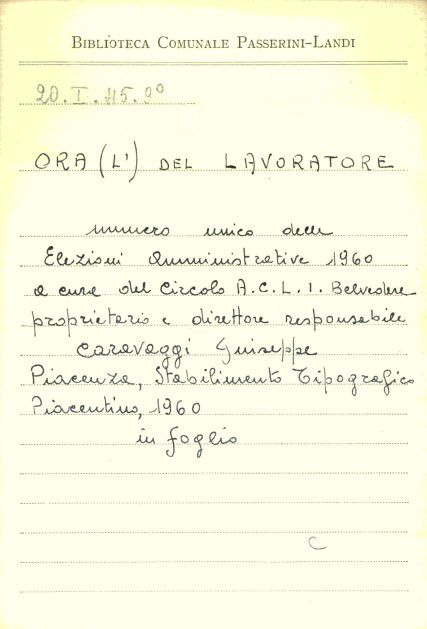 BIBLIOTECA COMUNALE PASSERINI-LANDI
20. I. 45. 9°
ORA (L') DEL LAVORATORE
numero unico delle
Elezioni Amministrative 1960
a cura del Circolo A.C.L.I. Belvedere
proprietario e direttore responsabile
Caravaggi Giuseppe
Piacenza, Stabilimento Tipografico
Piacentino, 1960
in foglio
C